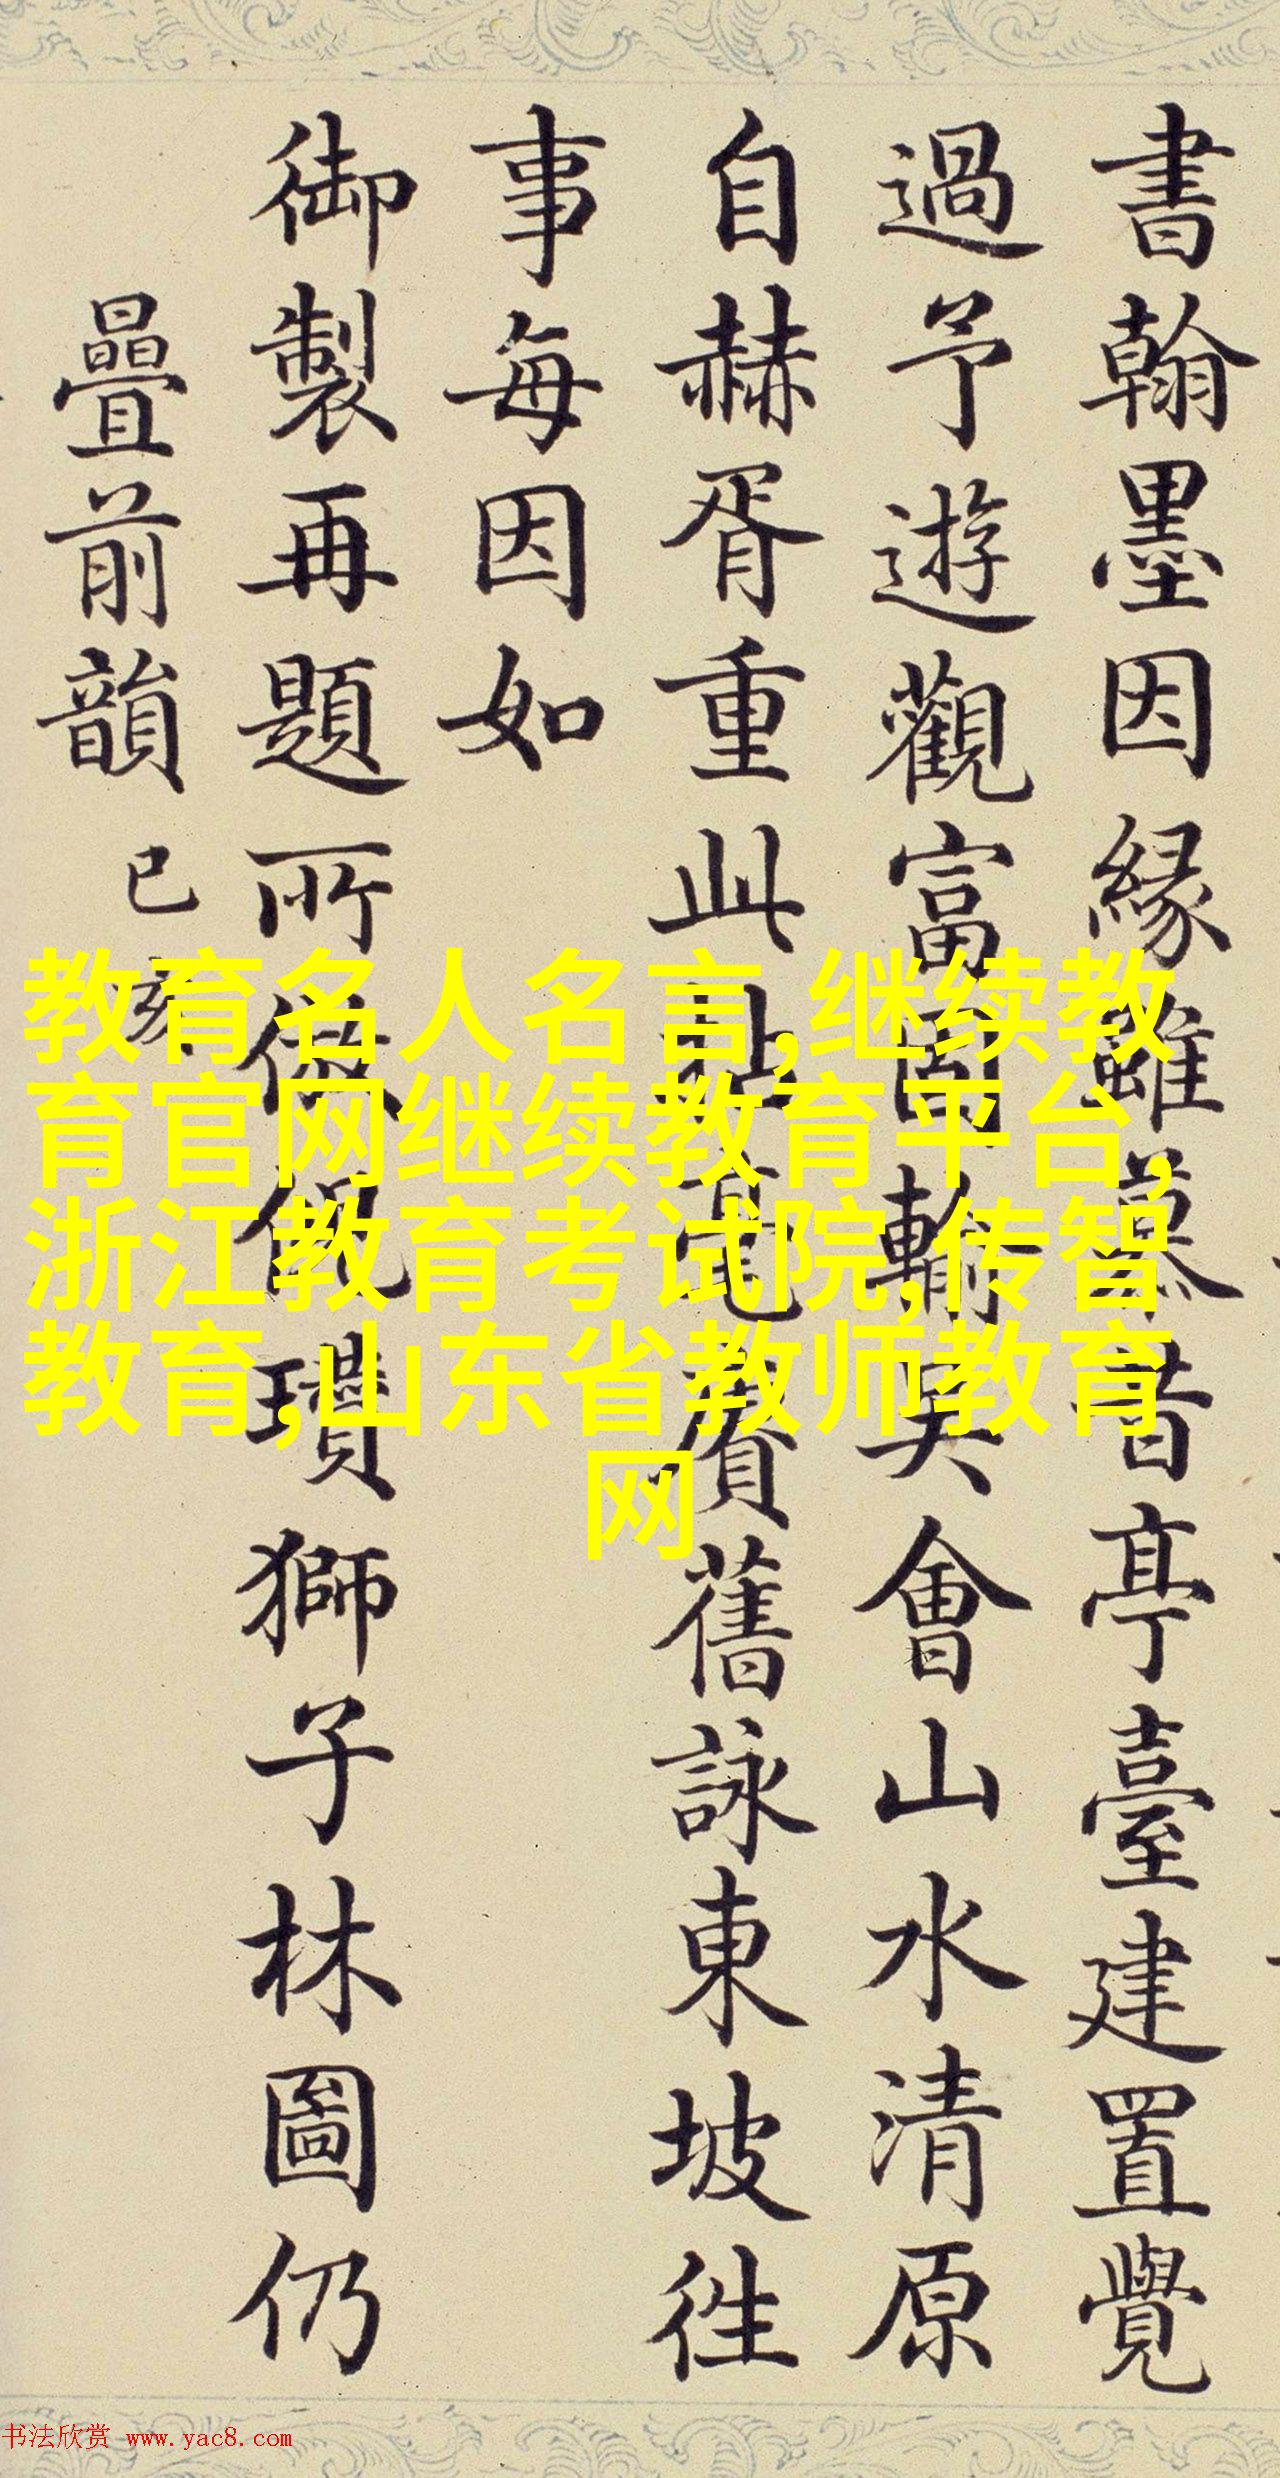 書翰墨因緣雖慕昔亭臺建置覺
過予遊觀富固輸吳會山水清原
自赫胥重此拈毫賡舊詠東坡徃
事每因如
御製再題所倣倪瓚獅子林圖仍
疊前韻 已亥
教育名人名言,继续教
育官网继续教育平台,
浙江教育考试院,传智
教育,山东省教师教育
网
书法欣赏 www.yac8.com